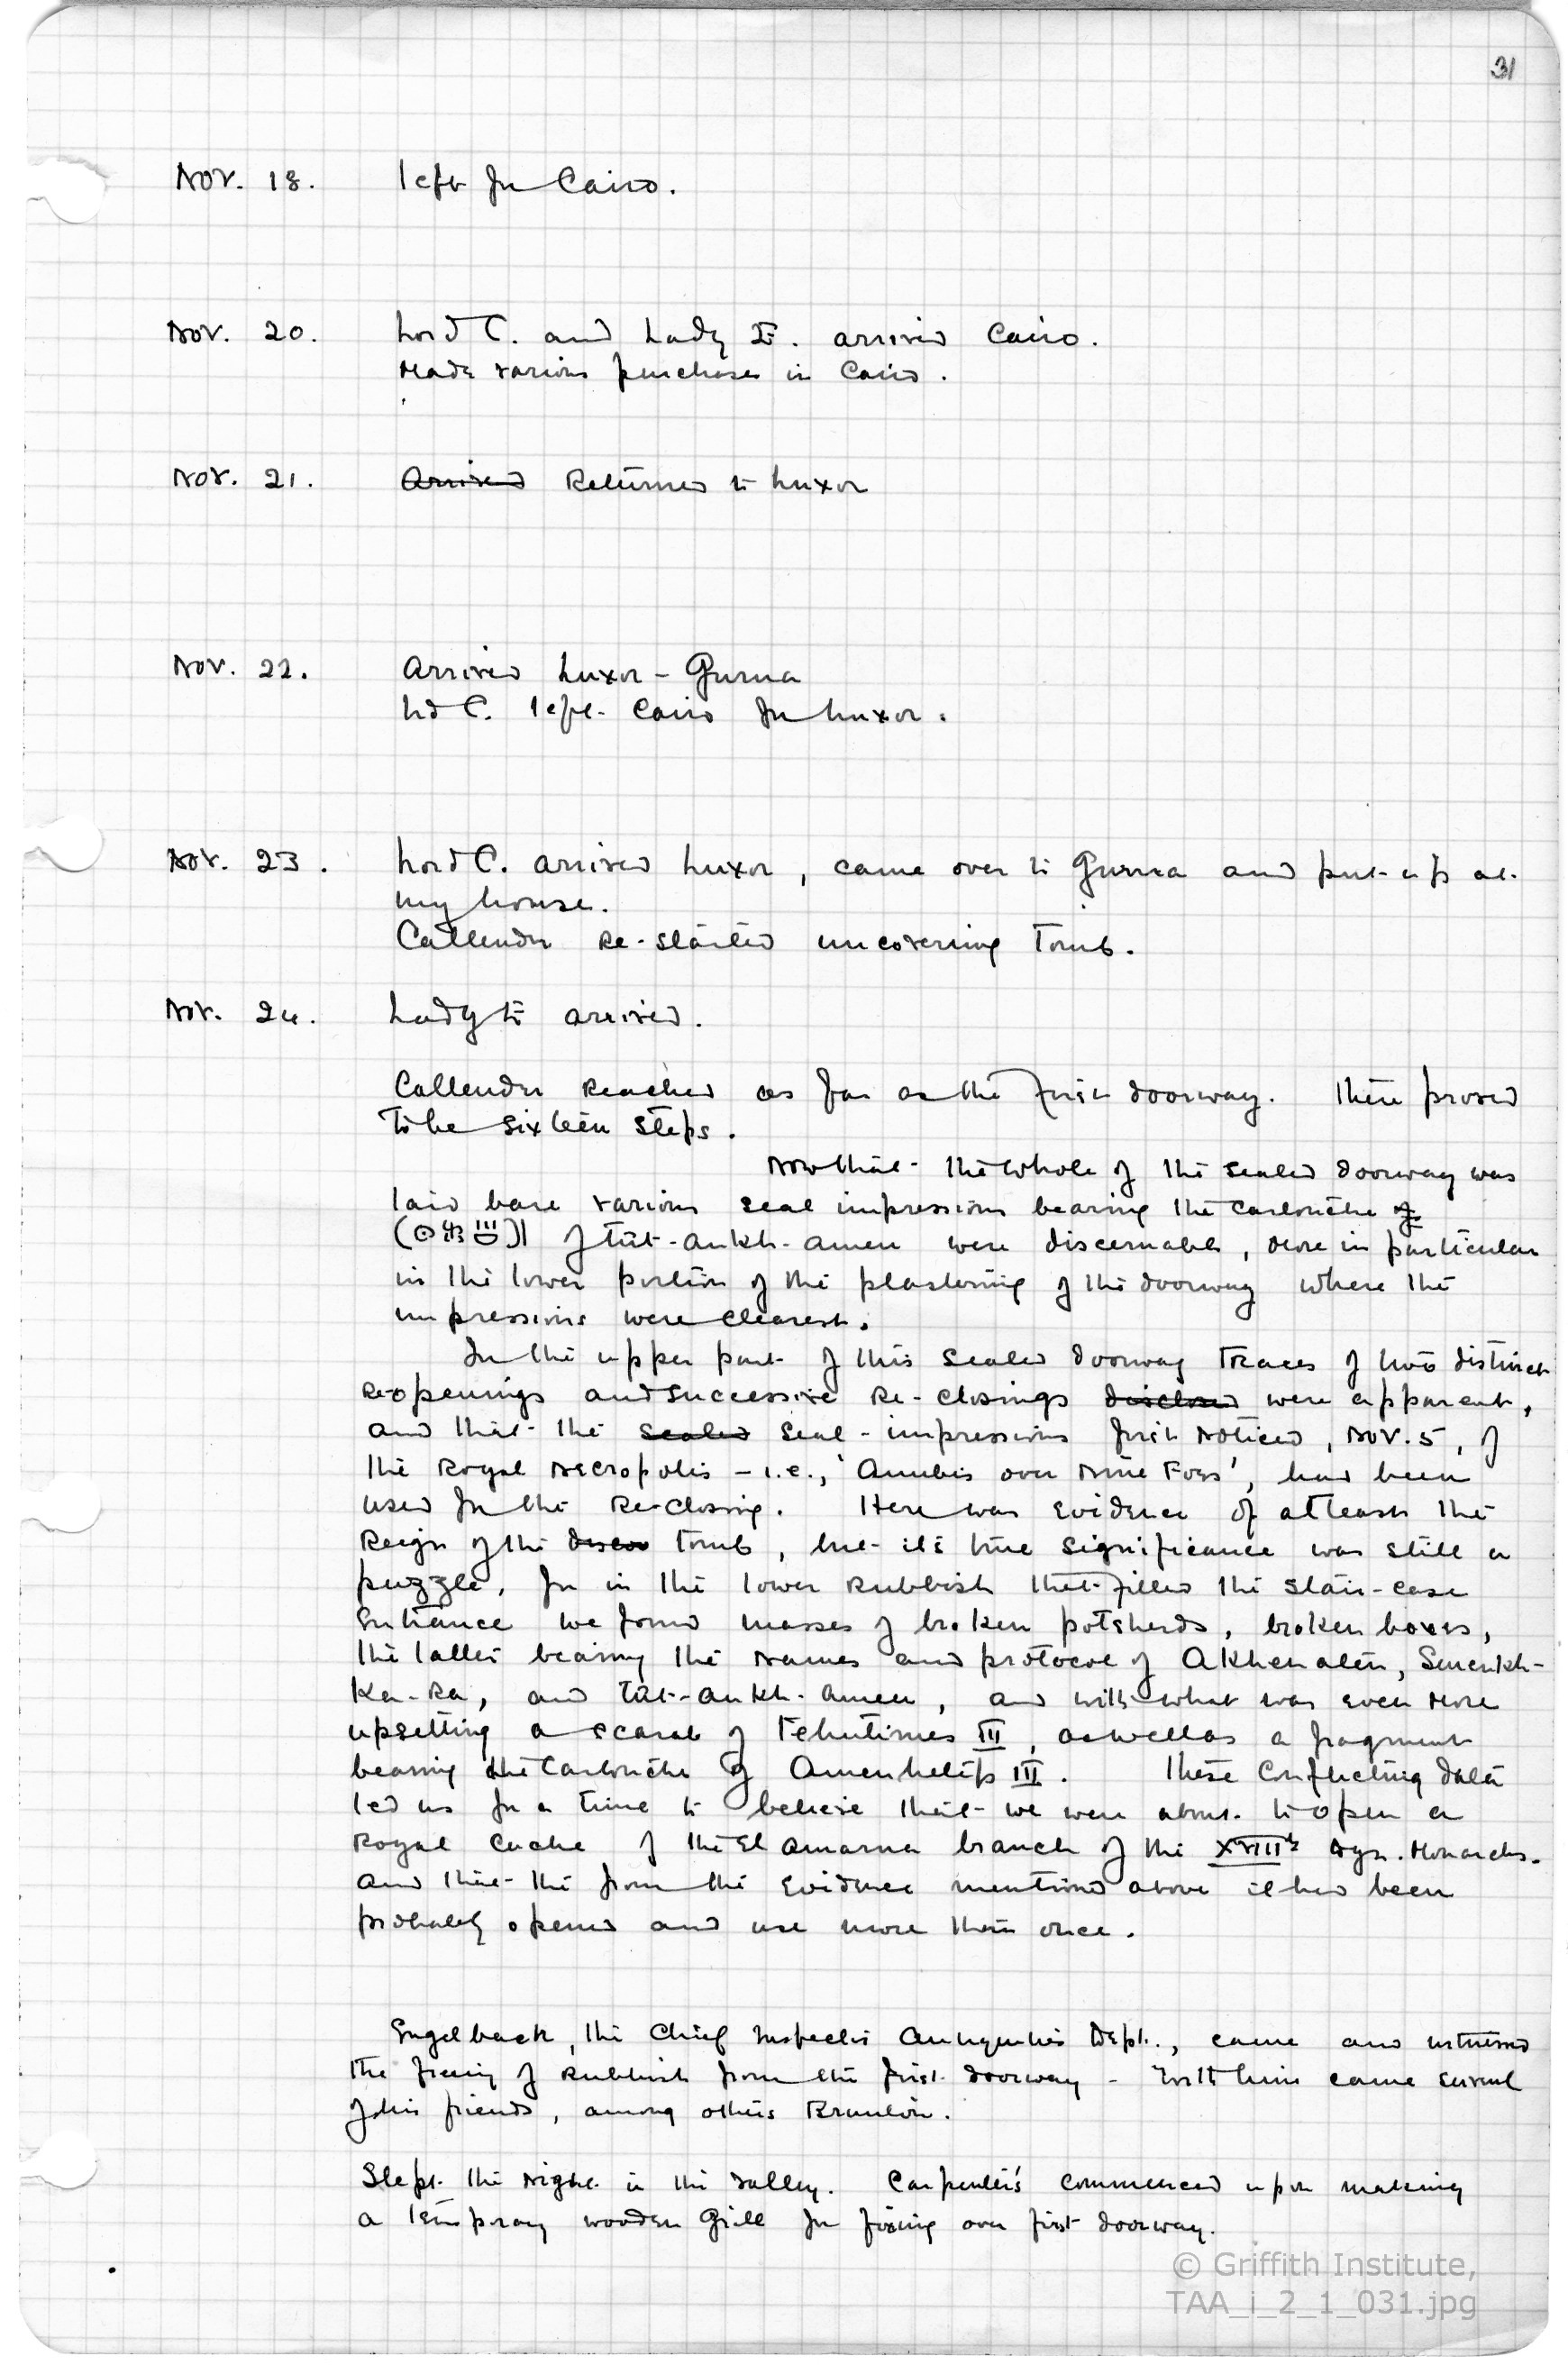 31
Nov. 18. left for Cairo.
Nov. 20. Lord C. and Lady E. arrived Cairo.
Made various purchases in Cairo.
Nov. 21. Arrived Returned to Luxor
Nov. 22. Arrived Luxor - Gurna
Ld C. left Cairo for Luxor.
Nov. 23. Lord C. arrived Luxor, came over to Gurna and put up at
my house.
Callender Re-started uncovering Tomb.
Nov. 24. Lady E arrived.
Callender Reached as far as the first doorway. There proved
to be sixteen steps.
Now that the whole of the sealed doorway was
laid bare various seal impressions bearing the cartouche of
of Tût-ankh-amen were discernable, more in particular
in the lower portion of the plastering of the doorway where the
impressions were clearest.
In the upper part of this sealed doorway traces of two distinct
Reopenings and successive Re-closings disclosed were apparent,
and that the sealed seal-impressions first noticed, Nov. 5, of
the Royal Necropolis - i.e., 'Anubis over Nine Foes', had been
used for the Re-closing. Here was evidence of at least the
Reign of the Tomb, but its true significance was still a
puzzle, for in the lower Rubbish that filled the stair-case
entrance we found masses of broken potsherds, broken boxes,
the latter bearing the names and protocol of Akhenaten, Smenkh-
Ka-Ra, and Tût-ankh-amen, and with what was even more
upsetting a scarab of Tehutimes III, as well as a fragment
bearing the Cartouche of Amenhetep III. These conflicting data
led us for a time to believe that we were about to open a
Royal Cache of the El Amarna branch of the XVIIIth Dyn. Monarchs.
and that the from the evidence mentioned above it had been
probably opened and use more than once.
Engelback, the Chief Inspector Antiquities Dept., came and witnessed
the freeing of Rubbish from the first doorway - With him came several
of his friends, among others Brunton.
Slept the night in the Valley. Carpenter's commenced upon making
a temporary wooden grill for fixing over first doorway.
© Griffith Institute,
TAA_i_2_1_031.jpg